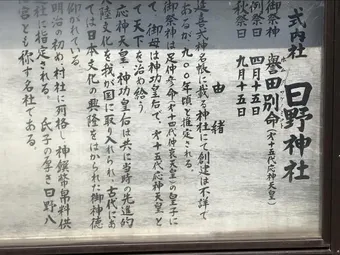 式内社
日野神社
祭神 譽田別命（才十五代応神天皇）
例祭日 四月十五日
秋祭日 九月十五日
由緒
延喜式神名帳に載る神社にて創建は不詳で
あるが九〇〇年頃と推定される。
御祭神は足仲彦命（才十四代仲哀天皇）の皇子に
て、御母は神功皇后で、才十五代応神天皇と
て天下を治め給う
応神天皇、神功皇后は共に当時の先進的
陸文化を我が国に取り入れられ、古代にあ
ては日本文化の興隆をはかられた御神徳
仰がれている。
明治の初め村社に列格し神饌幣帛料供
社に指定される。氏子の厚さ日野八
宮とも称す名社である。